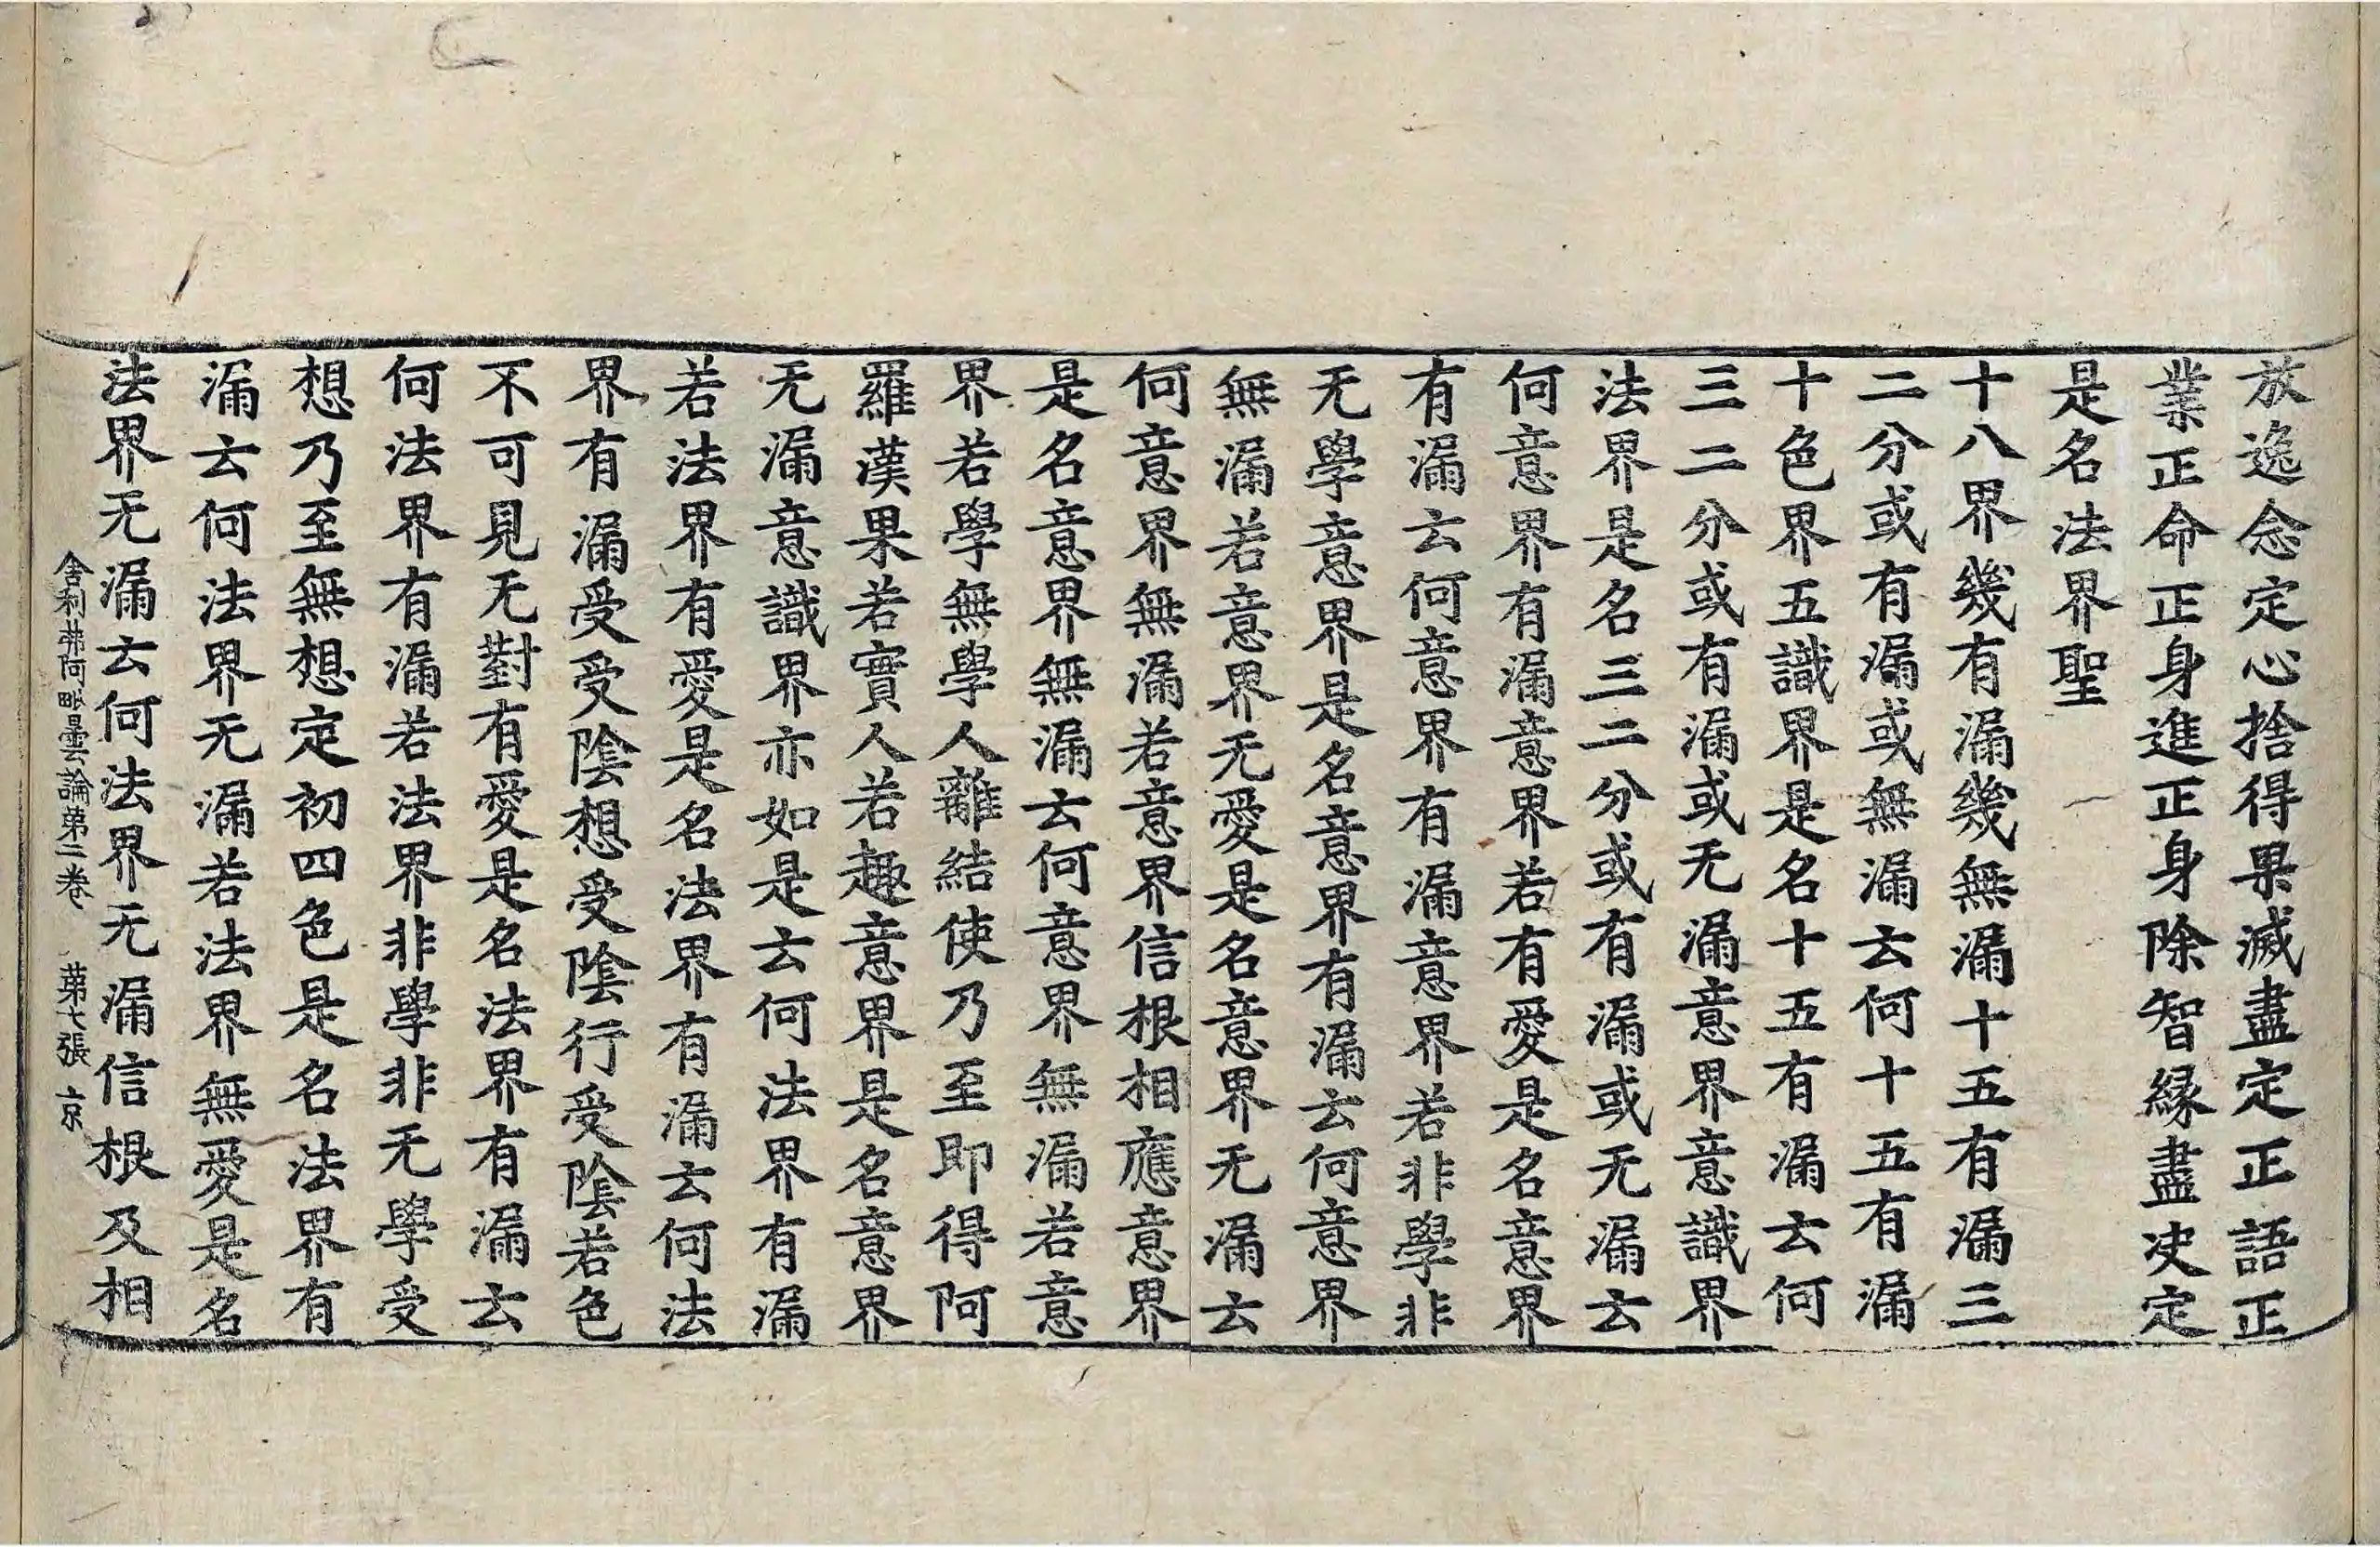 放逸念定心捨得果滅盡定正語正
業正命正身進正身除智縁盡决定
是名法界聖
十八界幾有漏幾無漏十五有漏三
二分或有漏或無漏云何十五有漏
十色界五識界是名十五有漏云何
三二分或有漏或无漏意界意識界
法界是名三二分或有漏或无漏云
何意界有漏意界若有愛是名意界
有漏云何意界有漏意界若非學非
无學意界是名意界有漏云何意界
無漏若意界无愛是名意界无漏云
何意界無漏若意界信根相應意界
是名意界無漏云何意界無漏若意
界若學無學人離結使乃至即得阿
羅漢果若實人若趣意界是名意界
无漏意識界亦如是云何法界有漏
若法界有愛是名法界有漏云何法
界有漏受受陰想受陰行受陰若色
不可見无對有愛是名法界有漏云
何法界有漏若法界非學非无學受
想乃至無想定初四色是名法界有
漏云何法界无漏若法界無愛是名
法界无漏云何法界无漏信根及相
舍利弗阿毗曇論第二卷 第七張 京